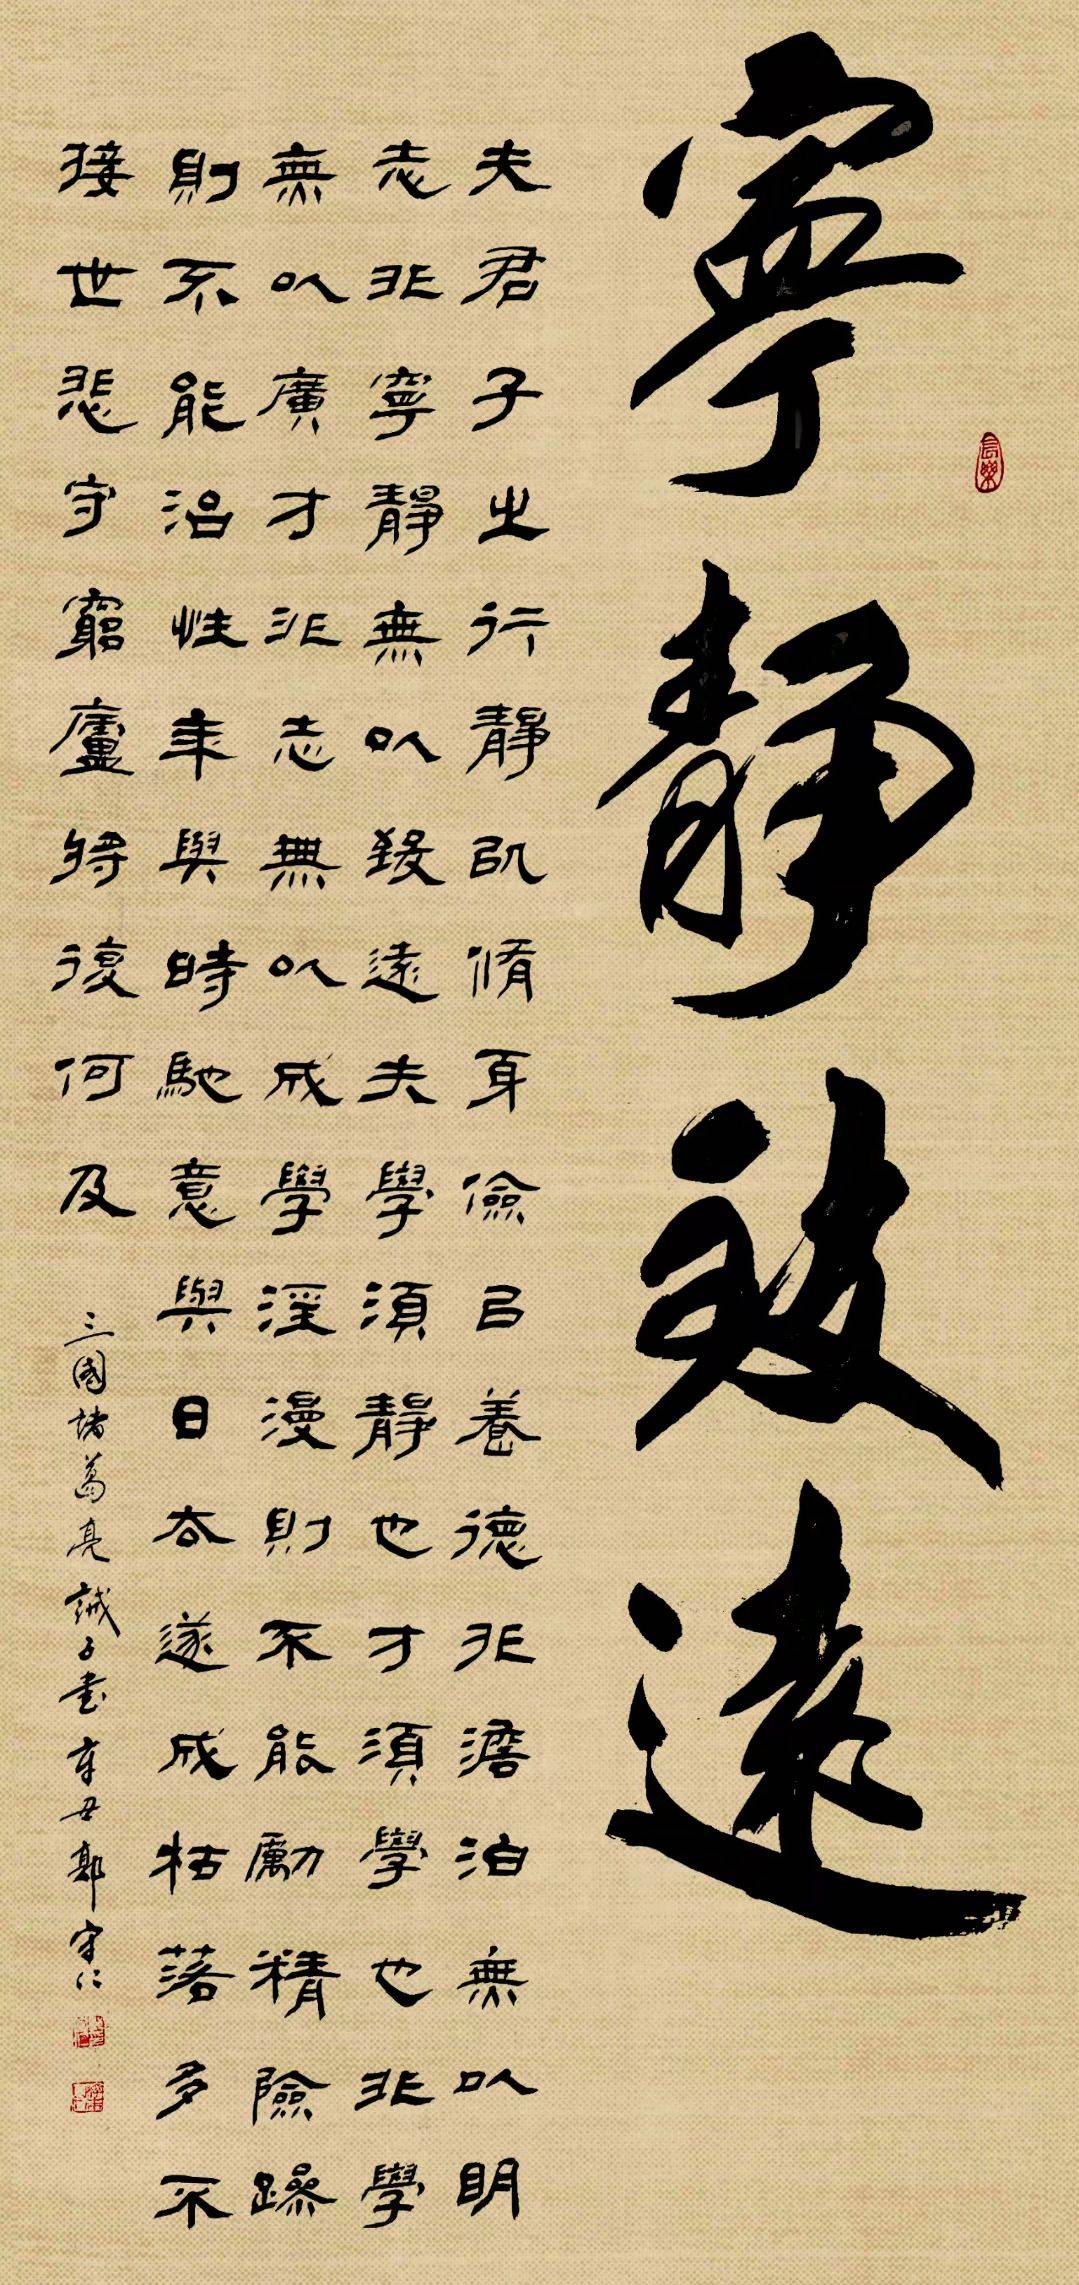 寧靜致遠
長樂
夫君子之行靜以脩身儉以養德非澹泊無以明
志非寧靜無以致遠夫學須靜也才須學也非學
無以廣才非志無以成學淫漫則不能勵精險躁
則不能治性年與時馳意與日去遂成枯落多不
接世悲守窮廬將復何及
三國諸葛亮誡子書辛丑郭守仁